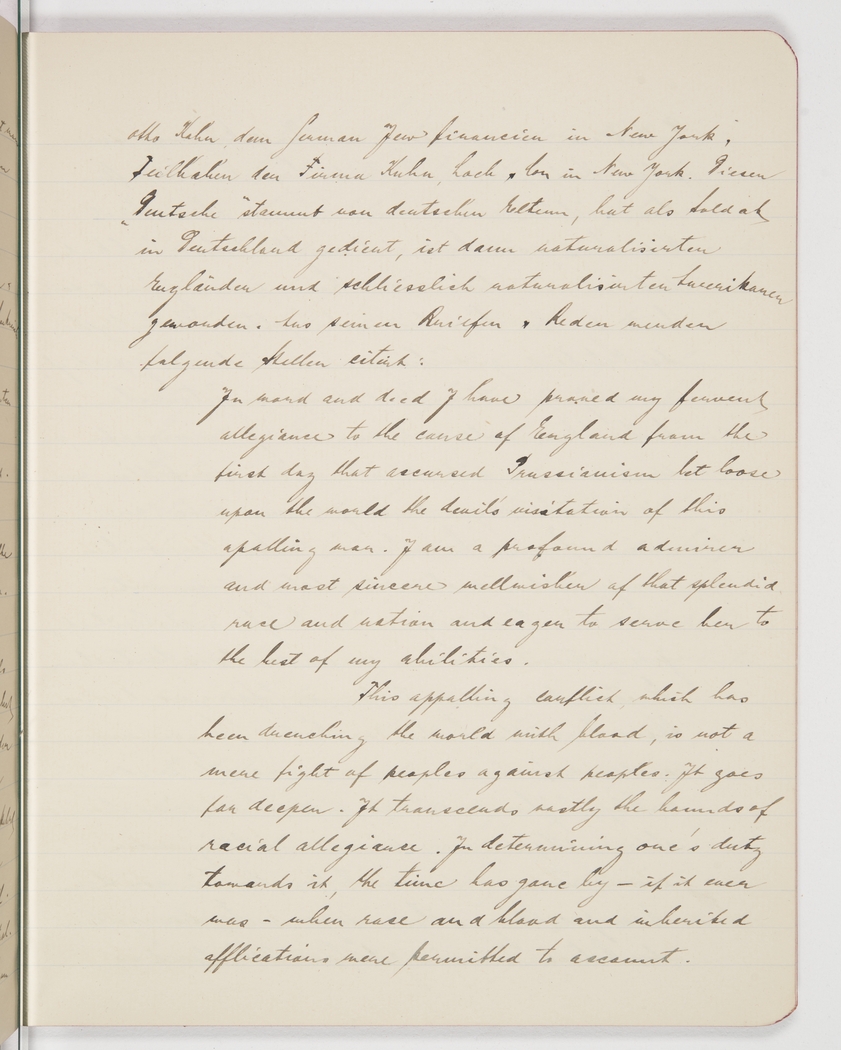 Otto Kahn, dem German Jew financier in New York,
Teilhaber der Firma Kuhn, Loeb & Con in New York. Dieser
„Deutsche" stammt von deutschen Eltern, hat als Soldat
in Deutschland gedient, ist dann naturalisirter
Engländer und schliesslich naturalisirter Amerikaner
geworden. Aus seinen Briefen & Reden werden
folgende Stellen citirt:
In word and deed I have proved my fervent
allegiance to the cause of England from the
first day that accursed Prussianism let loose
upon the world the devil's visitation of this
apalling war. I am a profound admirer
and most sincere wellwisher of that splendid
race and nation and eager to serve her to
the best of my abilities.
This appalling conflict, which has
been drenching the world with blood, is not a
mere fight of peoples against peoples. It goes
far deeper. It transcends vastly the bounds of
racial allegiance. In determining one's duty
towards it, the time has gone by – if it ever
was – when race and blood and inherited
afflications were permitted to account.